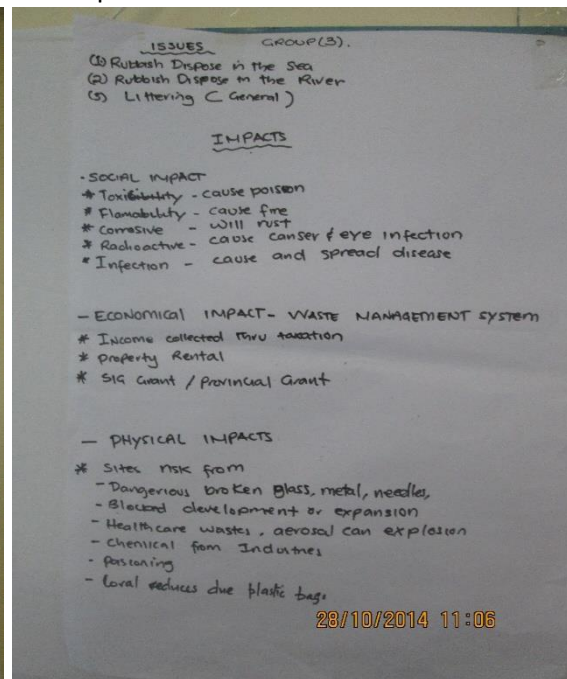 ISSUES GROUP(3).
(1) Rubbish Dispose in the Sea
(2) Rubbish Dispose in the River
(3) Littering (General)
IMPACTS
- SOCIAL IMPACT
* - cause poison
* Flamability - cause fire
* Corrosive - will rust
* Radioactive - cause canser & eye infection
* Infection - cause and spread disease
- ECONOMICAL IMPACT - WASTE MANAGEMENT SYSTEM
* Income collected thru taxation
* Property Rental
* SIG Grant / Provincial Grant
- PHYSICAL IMPACTS
* Sites risk from
- Dangerious broken glass, metal, needles,
- Blocked development or expansion
- Healthcare wastes, aerosal can explosion
- Chemical from Industries
- Poisoning
- Coral reduces due plastic bags
28/10/2014 11:06